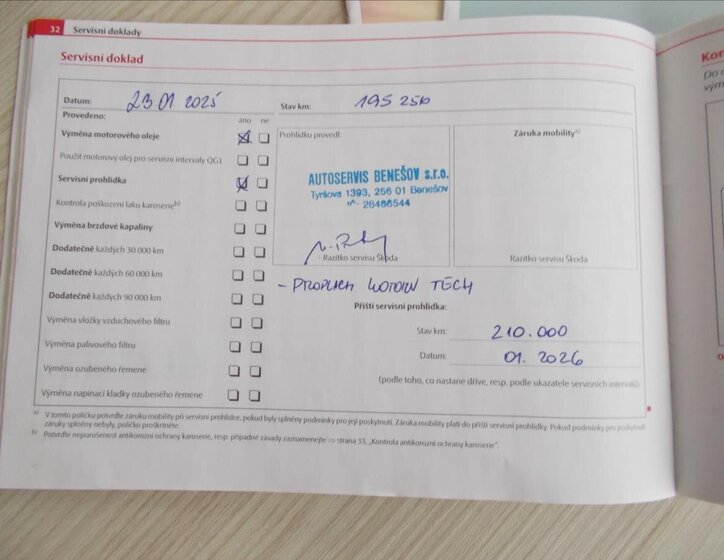 32 Servisní doklady
Servisní doklad
Datum: 23.01 2025
Stav km: 195 256
Provedeno: ano ne
Výměna motorového oleje
Použit motorový olej pro servisní intervaly QG1
Servisní prohlídka
Kontrola poškození laku karoserie b)
Výměna brzdové kapaliny
Dodatečně každých 30 000 km
Dodatečně každých 60 000 km
Dodatečně každých 90 000 km
Výměna vložky vzduchového filtru
Výměna palivového filtru
Výměna ozubeného řemene
Výměna napínací kladky ozubeného řemene
Prohlídku provedl:
AUTOSERVIS BENEŠOV s.r.o.
Tyršova 1393, 256 01 Benešov
28466544
Razítko servisu Škoda
Záruka mobility a)
Razítko servisu Škoda
- PROPLACH MOTORU TECH
Příští servisní prohlídka:
Stav km: 210.000
Datum: 01. 2026
(podle toho, co nastane dříve, resp. podle ukazatele servisních intervalů)
a) V tomto políčku potvrďte záruku mobility při servisní prohlídce, pokud byly splněny podmínky pro její poskytnutí. Záruka mobility platí do příští servisní prohlídky. Pokud podmínky pro poskytnutí
záruky splněny nebyly, políčko proškrtněte.
b) Potvrďte neporušenost antikorozní ochrany karoserie, resp. případné závady zaznamenejte ⇒ strana 33, „Kontrola antikorozní ochrany karoserie“.
Kon
Do
vým